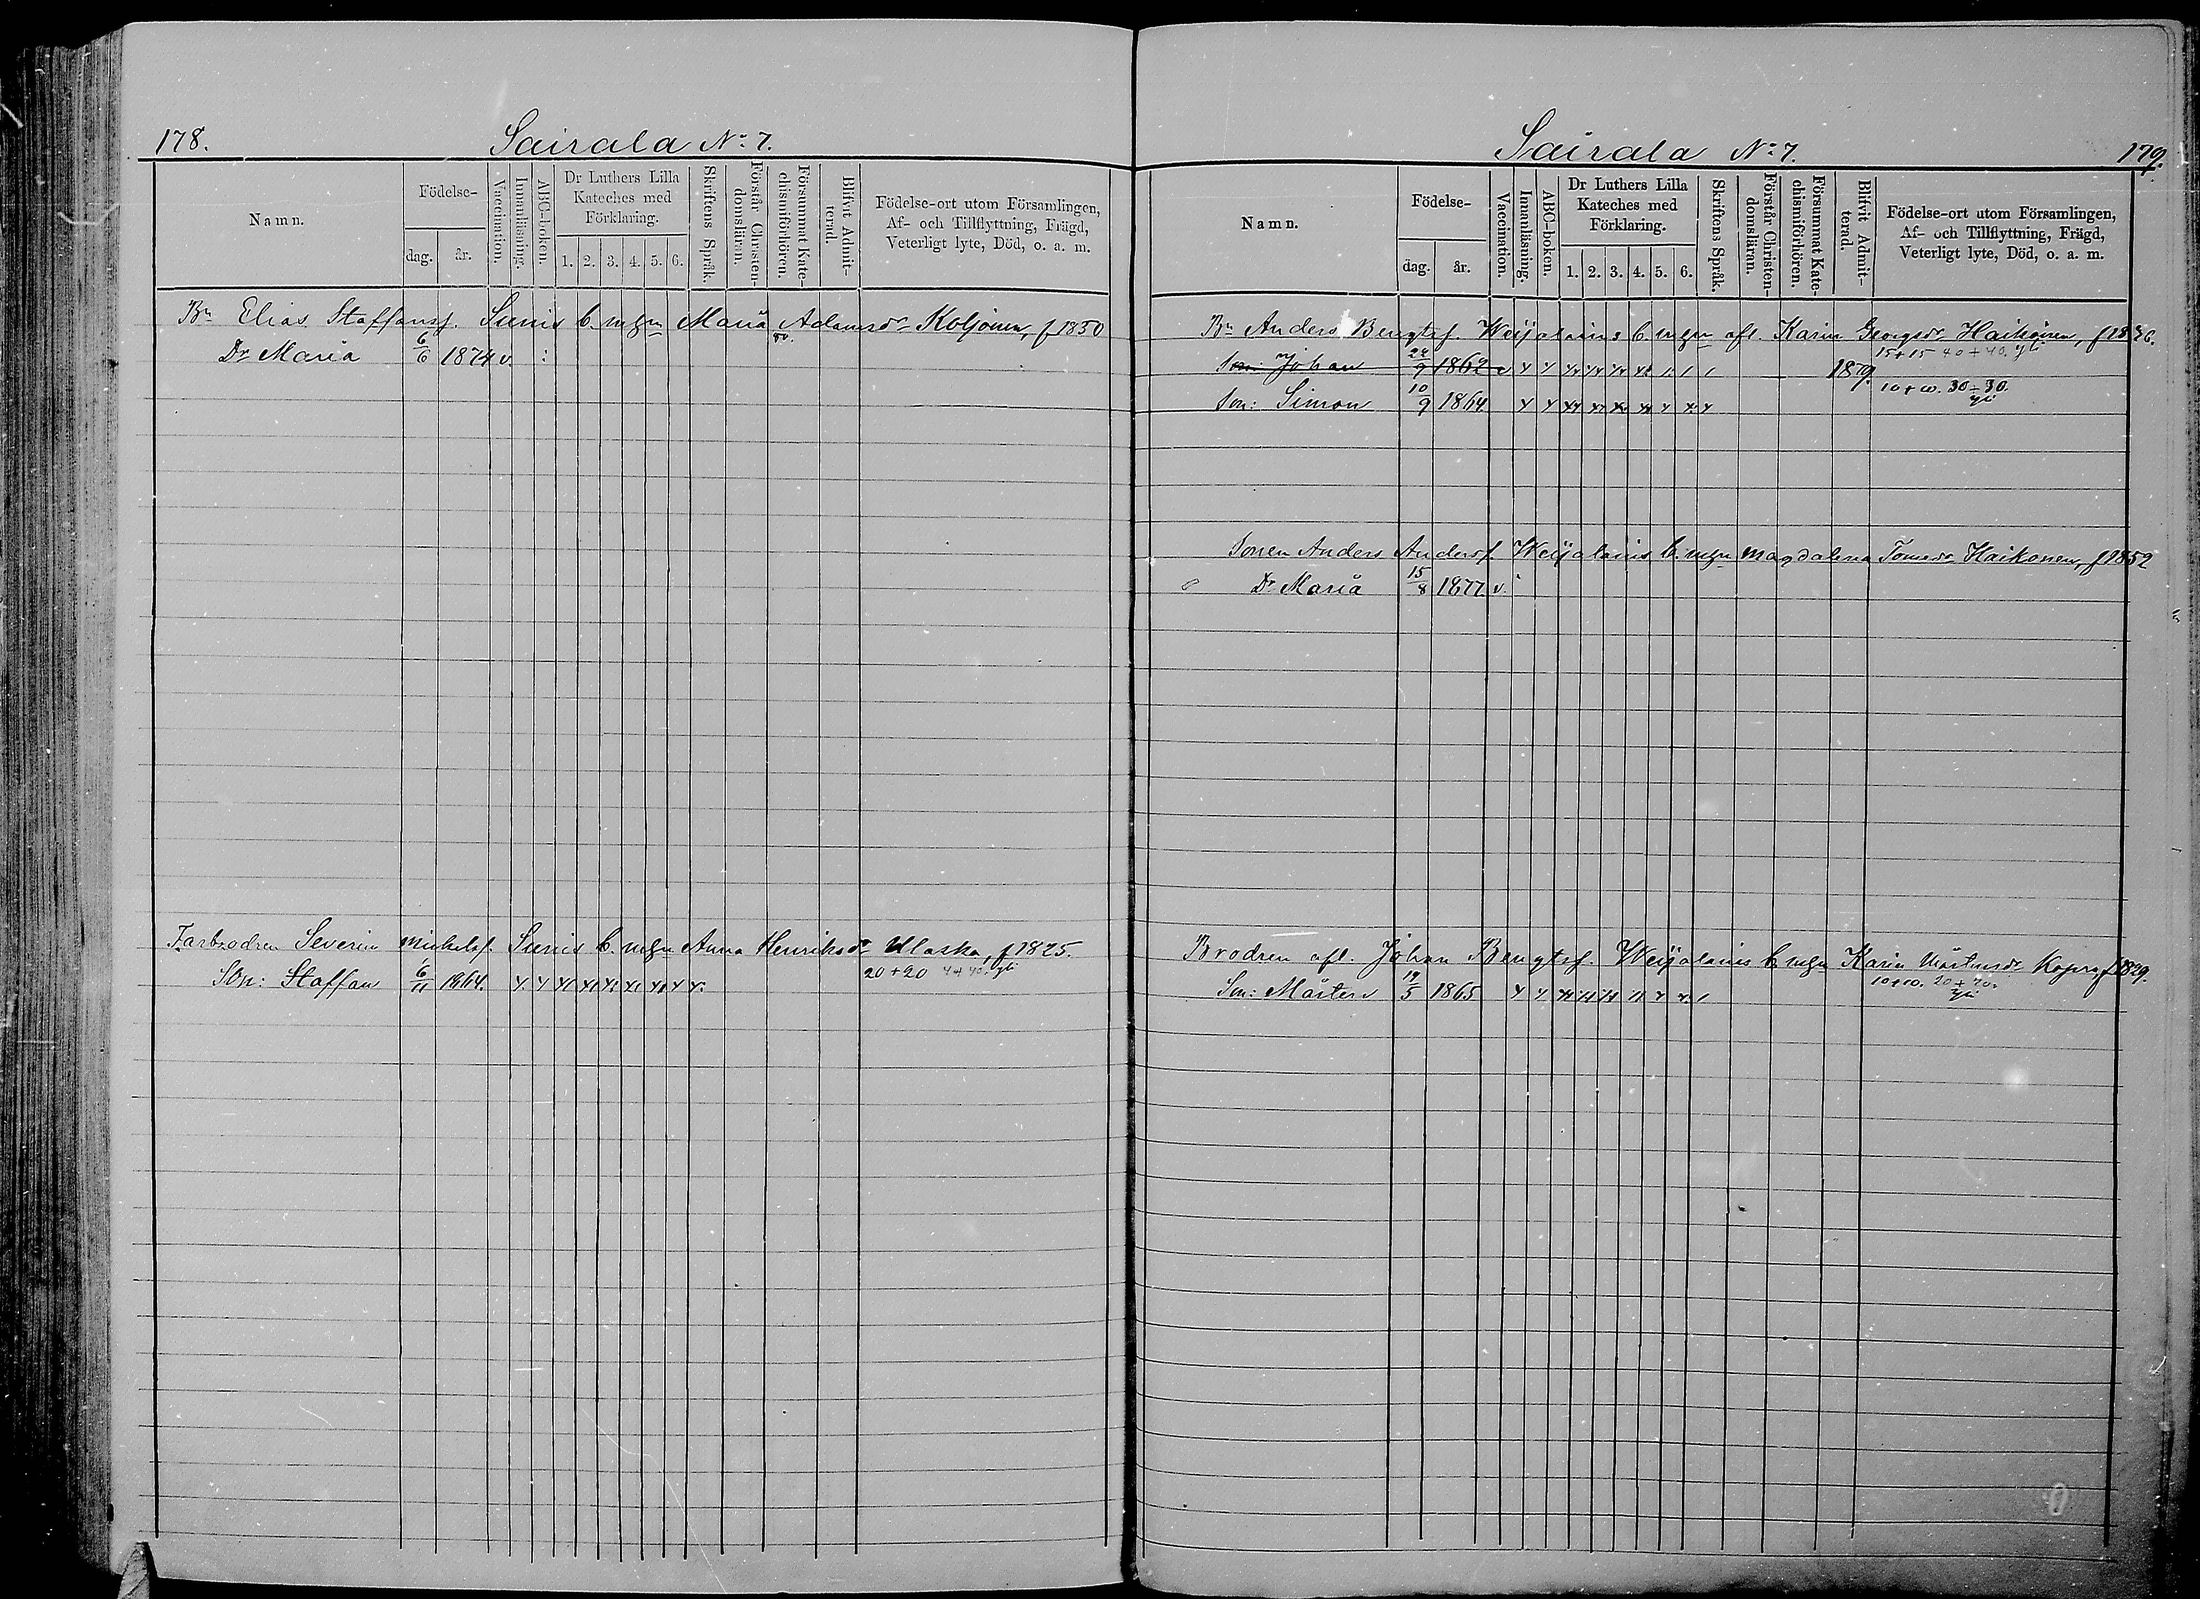 178.
Sairala No 7.
Namn.
Födelse-
dag.
år.
Vaccination.
Innanläsning.
ABC-boken.
Dr Luthers Lilla
Kateches med
Förklaring.
1. 2. 3. 4. 5. 6.
Skriftens Språk.
Förstår Christen-
domsläran.
Försummat Kate-
chismiförhören.
Blifvit Admit-
terad.
Födelse-ort utom Församlingen,
Af- och Tillflyttning, Frägd,
Veterligt lyte, Död, o. a. m.
Bn Elias Staffansf. Sunis b. m. gn Maria Adamsdr Koljonen, f 1850
Dr Maria 6/6 1874 v.
Farbrodren Severin Michelsf. Sunis b. mgn Anna Henriksdr Ulaska, f 1825.
20+20 4+40. yli
Son: Staffan 6/11 1864.
Sairala No 7.
179.
Namn.
Födelse-
dag.
år.
Vaccination.
Innanläsning.
ABC-boken.
Dr Luthers Lilla
Kateches med
Förklaring.
1. 2. 3. 4. 5. 6.
Skriftens Språk.
Förstår Christen-
domsläran.
Försummat Kate-
chismiförhören.
Blifvit Admit-
terad.
Födelse-ort utom Församlingen,
Af- och Tillflyttning, Frägd,
Veterligt lyte, Död, o. a. m.
Bn Anders Bengtsf. Weijalainis b. mgn afl. Karin Georgsdr Haikonen, f 18
15+15 40+40. yli
Son: Johan 9 1862 v 1879.
10+10. 30+30. yli
Son: Simon 10/9 1864
Sonen Anders Andersf. Weijalainis b. mgn Magdalena Tomasdr Haikonen, f 1852
Dr Maria 15/8 1877 v.
Brodren afl. Johan Bengtsf. Weijalainis b. mgn Karin Mårtensdr Kopra, f 1829.
10+10. 20+20. yli
Son: Mårten 19/5 1865